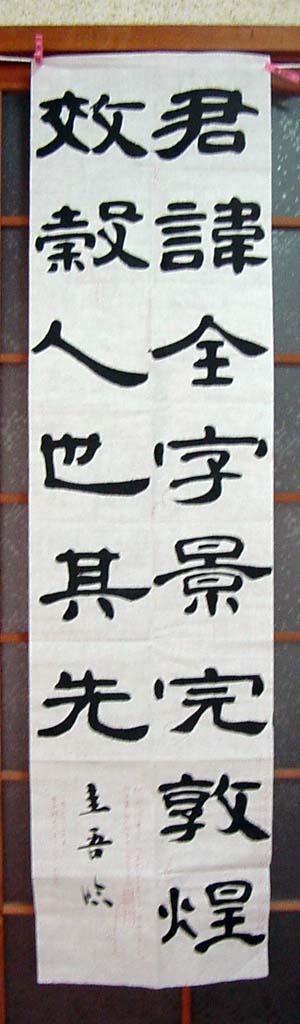 君諱全字景完敦煌
效穀人也其先
圭吾臨